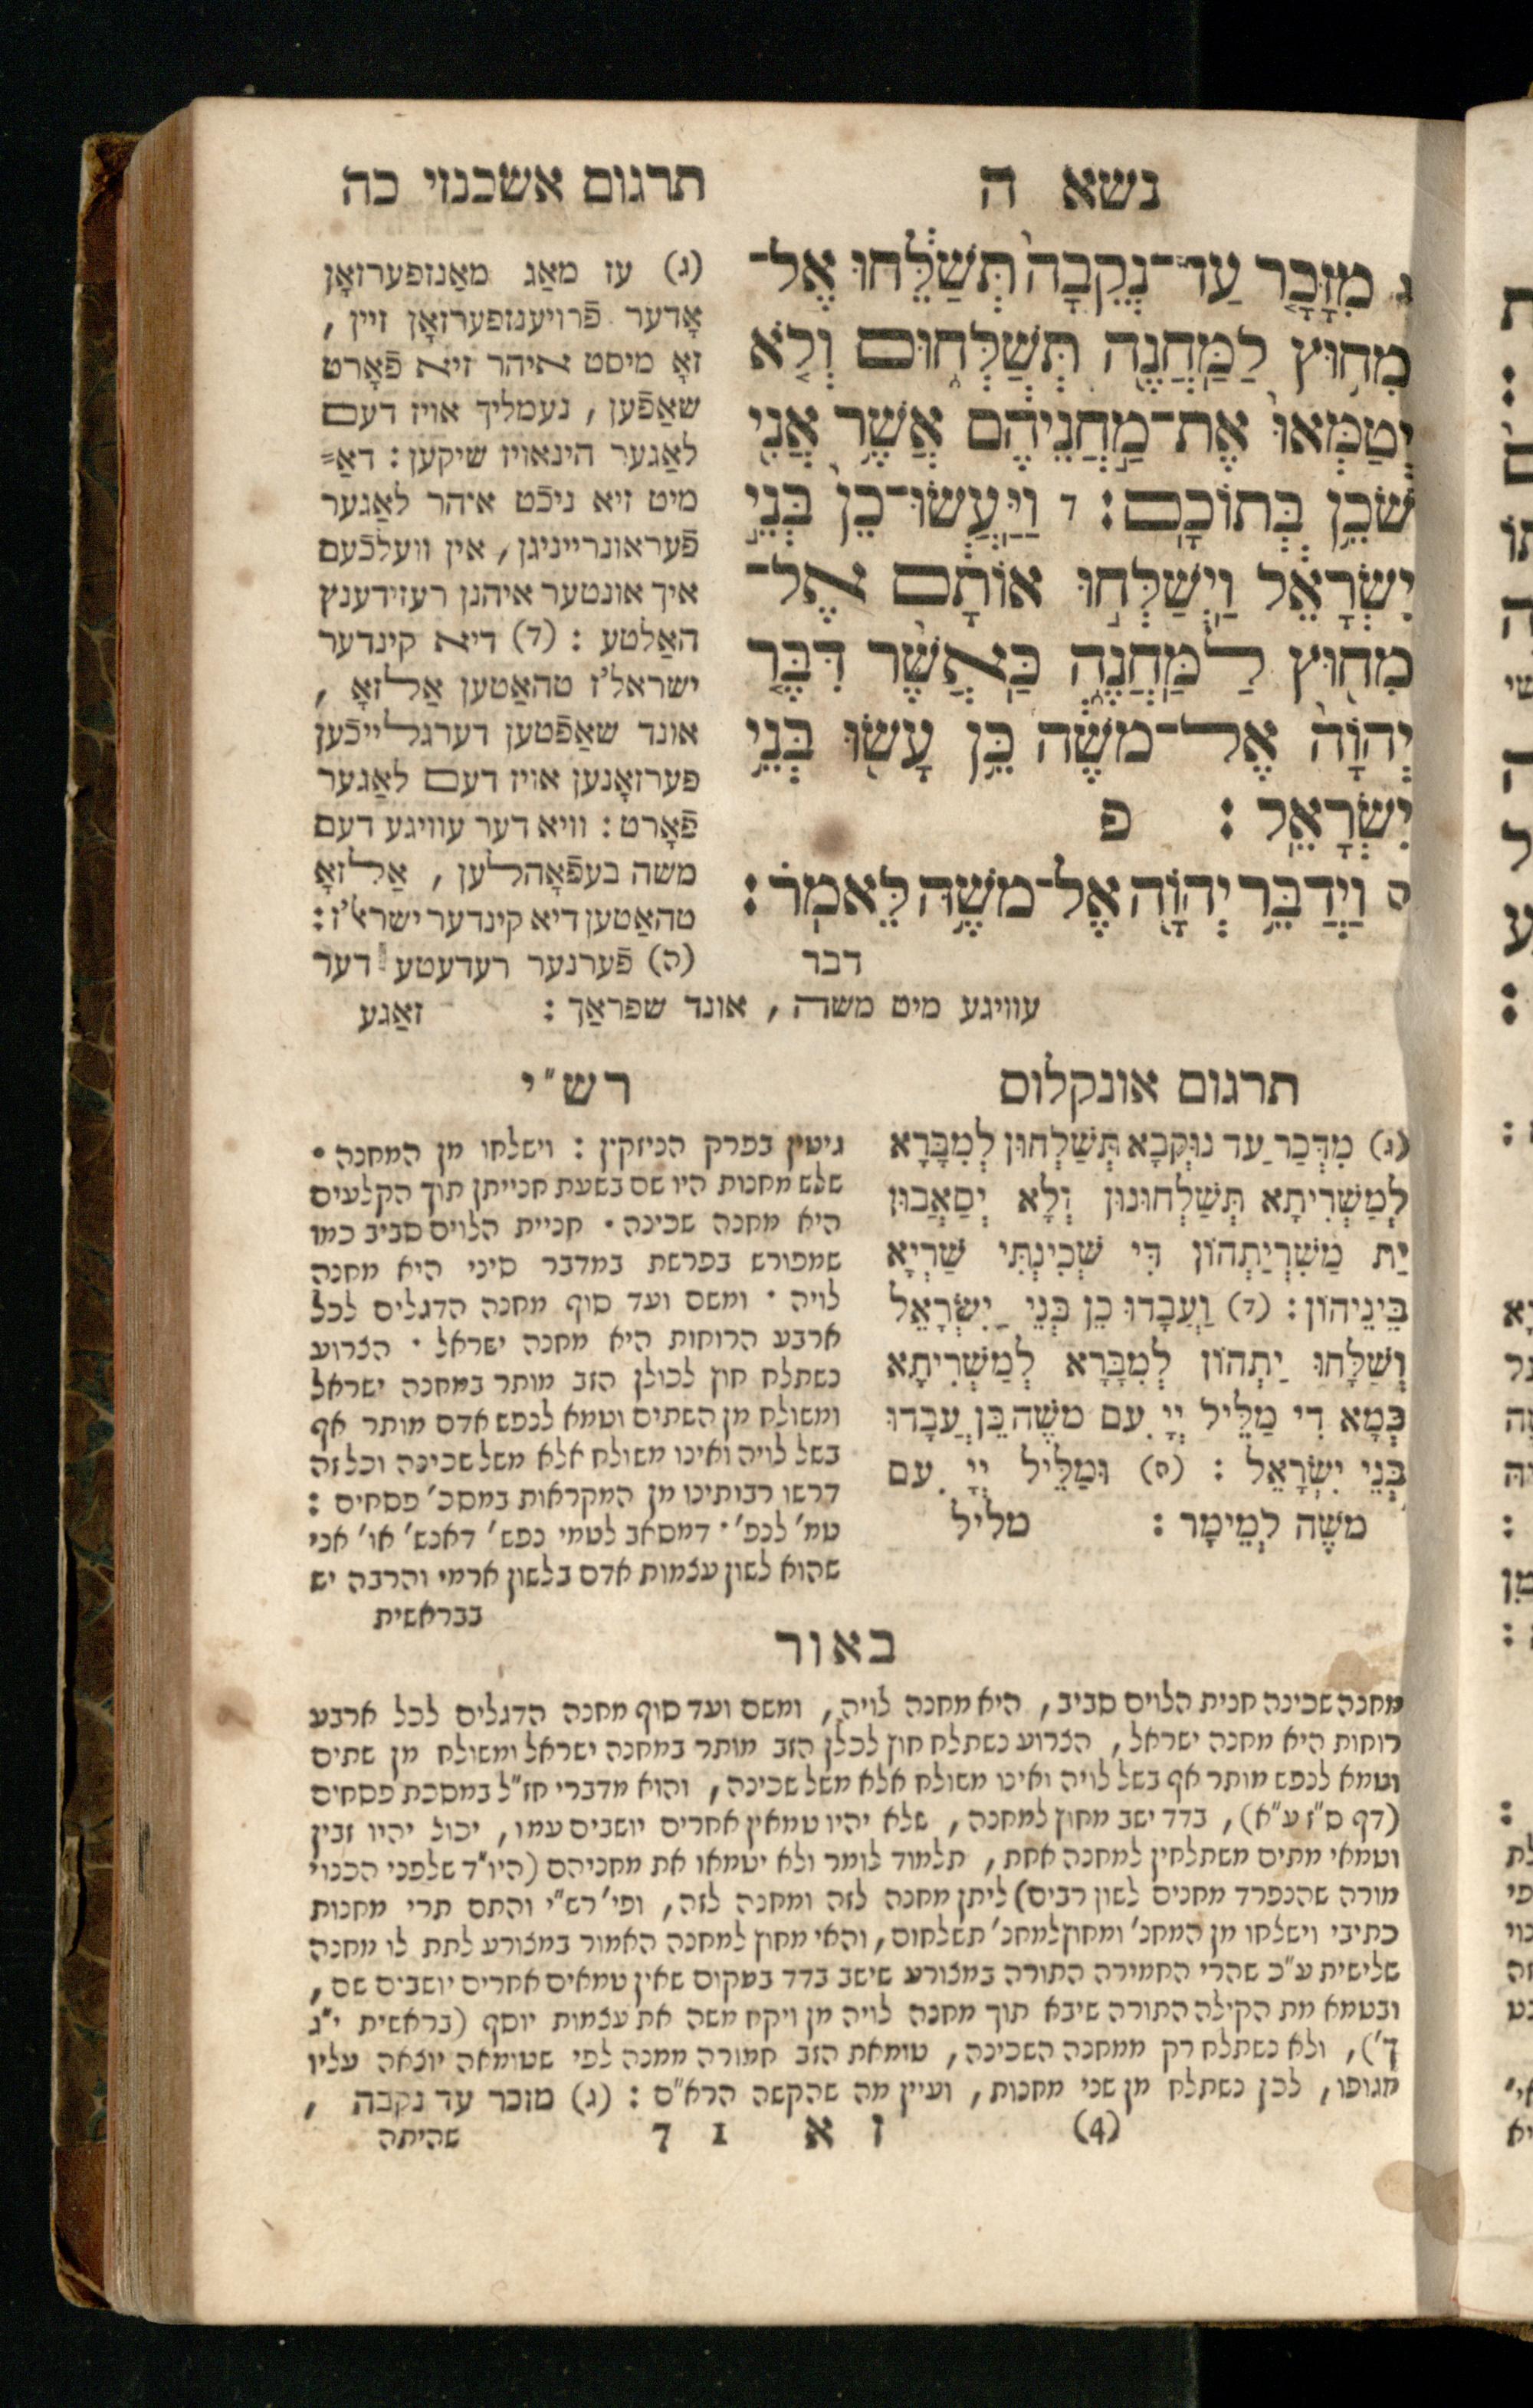 נשא ה
תרגום אשכנזי כה
ג מִזָּכָ֤ר עַד־נְקֵבָה֙ תְּשַׁלֵּ֔חוּ אֶל־
מִח֥וּץ לַֽמַּחֲנֶ֖ה תְּשַׁלְּח֑וּם וְלֹ֤א
יְטַמְּאוּ֙ אֶת־מַ֣חֲנֵיהֶ֔ם אֲשֶׁ֥ר אֲנִ֖י
שֹׁכֵ֥ן בְּתוֹכָֽם׃ ד וַיַּֽעֲשׂוּ־כֵן֙ בְּנֵ֣י
יִשְׂרָאֵ֔ל וַיְשַׁלְּח֣וּ אוֹתָ֔ם אֶל־
מִח֖וּץ לַֽמַּחֲנֶ֑ה כַּֽאֲשֶׁ֨ר דִּבֶּ֤ר
יְהוָֹה֙ אֶל־מֹשֶׁ֔ה כֵּ֥ן עָשׂ֖וּ בְּנֵ֥י
יִשְׂרָאֵֽל׃ פ
ה וַיְדַבֵּ֥ר יְהוָֹ֖ה אֶל־מֹשֶׁ֥ה לֵּאמֹֽר׃
דבר
(ג) עז מאַג מאַנזפערזאָן
אָדער פֿרויענזפערזאָן זיין,
זאָ מיסט איהר זיא פֿאָרט
שאַפֿען, נעמליך אויז דעם
לאַגער הינאויז שיקען: דאַ=
מיט זיא ניכֿט איהר לאַגער
פֿעראונרייניגן, אין וועלכֿעם
איך אונטער איהנן רעזידענץ
האַלטע: (ד) דיא קינדער
ישראל'ז טהאַטען אַלזאָ,
אונד שאַפֿטען דערגלייכֿען
פערזאָנען אויז דעם לאַגער
פֿאָרט: וויא דער עוויגע דעם
משה בעפֿאָהלען, אַלזאָ
טהאַטען דיא קינדער ישראל'ז:
(ה) פֿערנער רעדעטע דער
עוויגע מיט משה, אונד שפראַך: זאַגע
תרגום אונקלוס
(ג) מִדְּכַר עַד נוּקְבָא תְּשַׁלְחוּן לְמִבָּרָא
לְמַשְׁרִיתָא תְּשַׁלְחוּנוּן וְלָא יְסַאֲבוּן
יַת מַשִׁרְיַתְהוֹן דִּי שְׁכִינְתִּי שַׁרְיָא
בֵּינֵיהוֹן: (ד) וַעֲבָדוּ כֵן בְּנֵי יִשְׂרָאֵל
וְשַׁלָּחוּ יַתְהוֹן לְמִבָּרָא לְמַשְׁרִיתָא
כְּמָא דִי מַלֵּיל יְיָ עִם משֶׁה כֵּן עֲבָדוּ
בְּנֵי יִשְׂרָאֵל: (ה) וּמַלֵּיל יְיָ עִם
משֶׁה לְמֵימָר: מליל
רש"י
גיטין בפרק הניזקין: וישלחו מן המחנה•
שלש מחנות היו שם בשעת חנייתן תוך הקלעים
היא מחנה שכינה• חניית הלוים סביב כמו
שמפורש בפרשת במדבר סיני היא מחנה
לויה• ומשם ועד סוף מחנה הדגלים לכל
ארבע הרוחות היא מחנה ישראל• הצרוע
נשתלח חוץ לכולן הזב מותר במחנה ישראל
ומשולח מן השתים וטמא לנפש אדם מותר אף
בשל לויה ואינו משולח אלא משל שכינה וכל זה
דרשו רבותינו מן המקראות במסכ' פסחים:
טמ' לנפ'• דמסאב לטמי נפש' דאנש' או' אני
שהוא לשון עצמות אדם בלשון ארמי והרבה יש
בבראשית
באור
מחנה שכינה חנית הלוים סביב, היא מחנה לויה, ומשם ועד סוף מחנה הדגלים לכל ארבע
רוחות היא מחנה ישראל, הצרוע נשתלח חוץ לכלן הזב מותר במחנה ישראל ומשולח מן שתים
וטמא לנפש מותר אף בשל לויה ואינו משולח אלא משל שכינה, והוא מדברי חז"ל במסכת פסחים
(דף ס"ז ע"א), בדד ישב מחוץ למחנה, שלא יהיו טמאין אחרים יושבים עמו, יכול יהיו זבין
וטמאי מתים משתלחין למחנה אחת, תלמוד לומר ולא יטמאו את מחניהם (היו"ד שלפני הכנוי
מורה שהנפרד מחנים לשון רבים) ליתן מחנה לזה ומחנה לזה, ופי' רש"י והתם תרי מחנות
כתיבי וישלחו מן המחנ' ומחוץ למחנ' תשלחום, והאי מחוץ למחנה האמור במצורע לתת לו מחנה
שלישית ע"כ שהרי החמירה התורה במצורע שישב בדד במקום שאין טמאים אחרים יושבים שם,
ובטמא מת הקילה התורה שיבא תוך מחנה לויה מן ויקח משה את עצמות יוסף (בראשית י"ג
ד'), ולא נשתלח רק ממחנה השכינה, טומאת הזב חמורה ממנה לפי שטומאה יוצאה עליו
מגופו, לכן נשתלח מן שני מחנות, ועיין מה שהקשה הרא"ם: (ג) מזכר עד נקבה,
(4) ז א 1 7 שהיתה